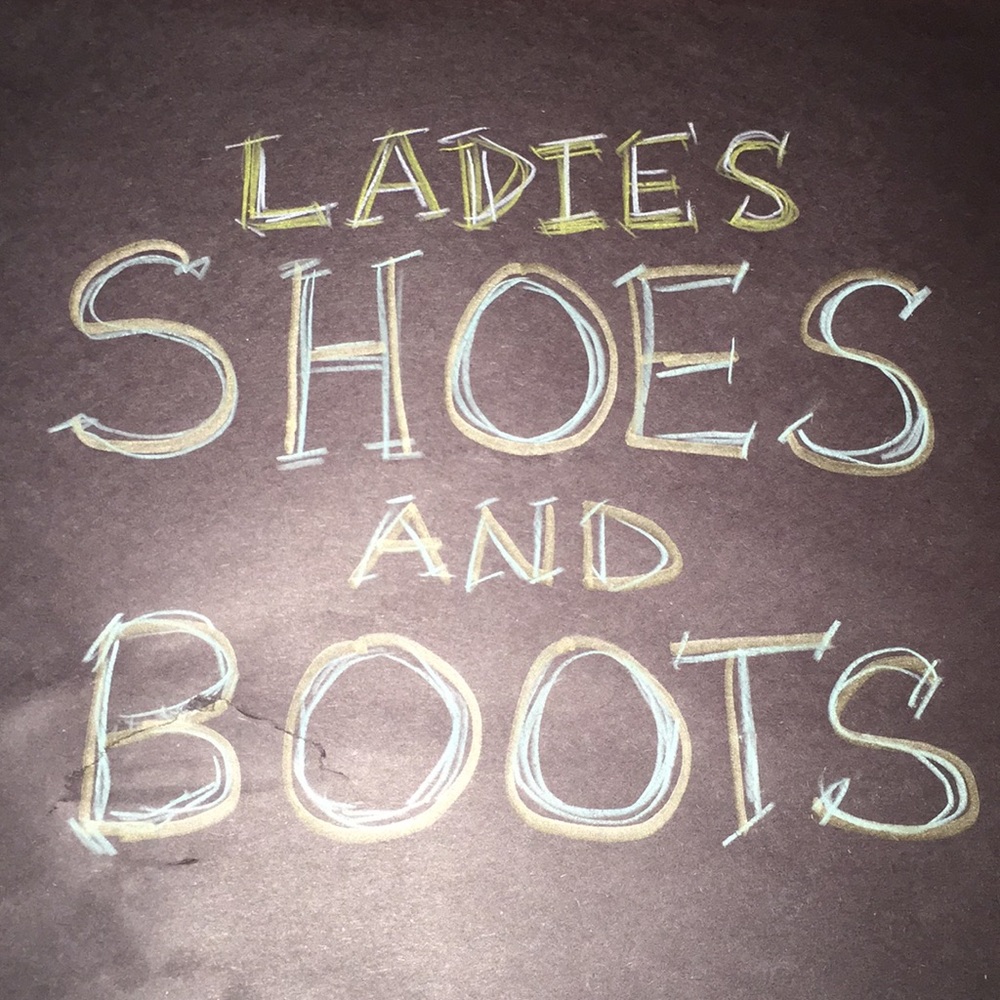 LADIES
SHOES
AND
BOOTS